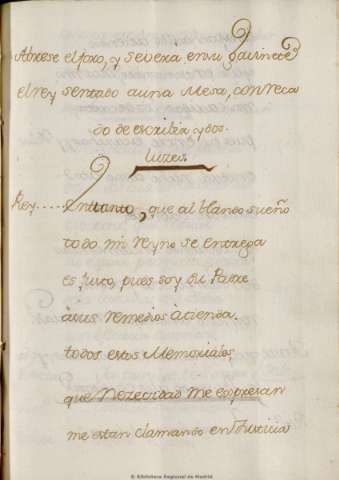 Abrese el foro, y se verá en su Gavinete
el rey sentado a una Mesa, con reca
do de escribir, y dos
luzes.
Rey.... Entanto, que al blando sueño
todo mi reyno se entrega
es justo, pues soy su Padre
à sus remedios atienda.
todos estos Memoriales,
que Necesidad me expresan
me estan clamando en Justicia
© Biblioteca Regional de Madrid